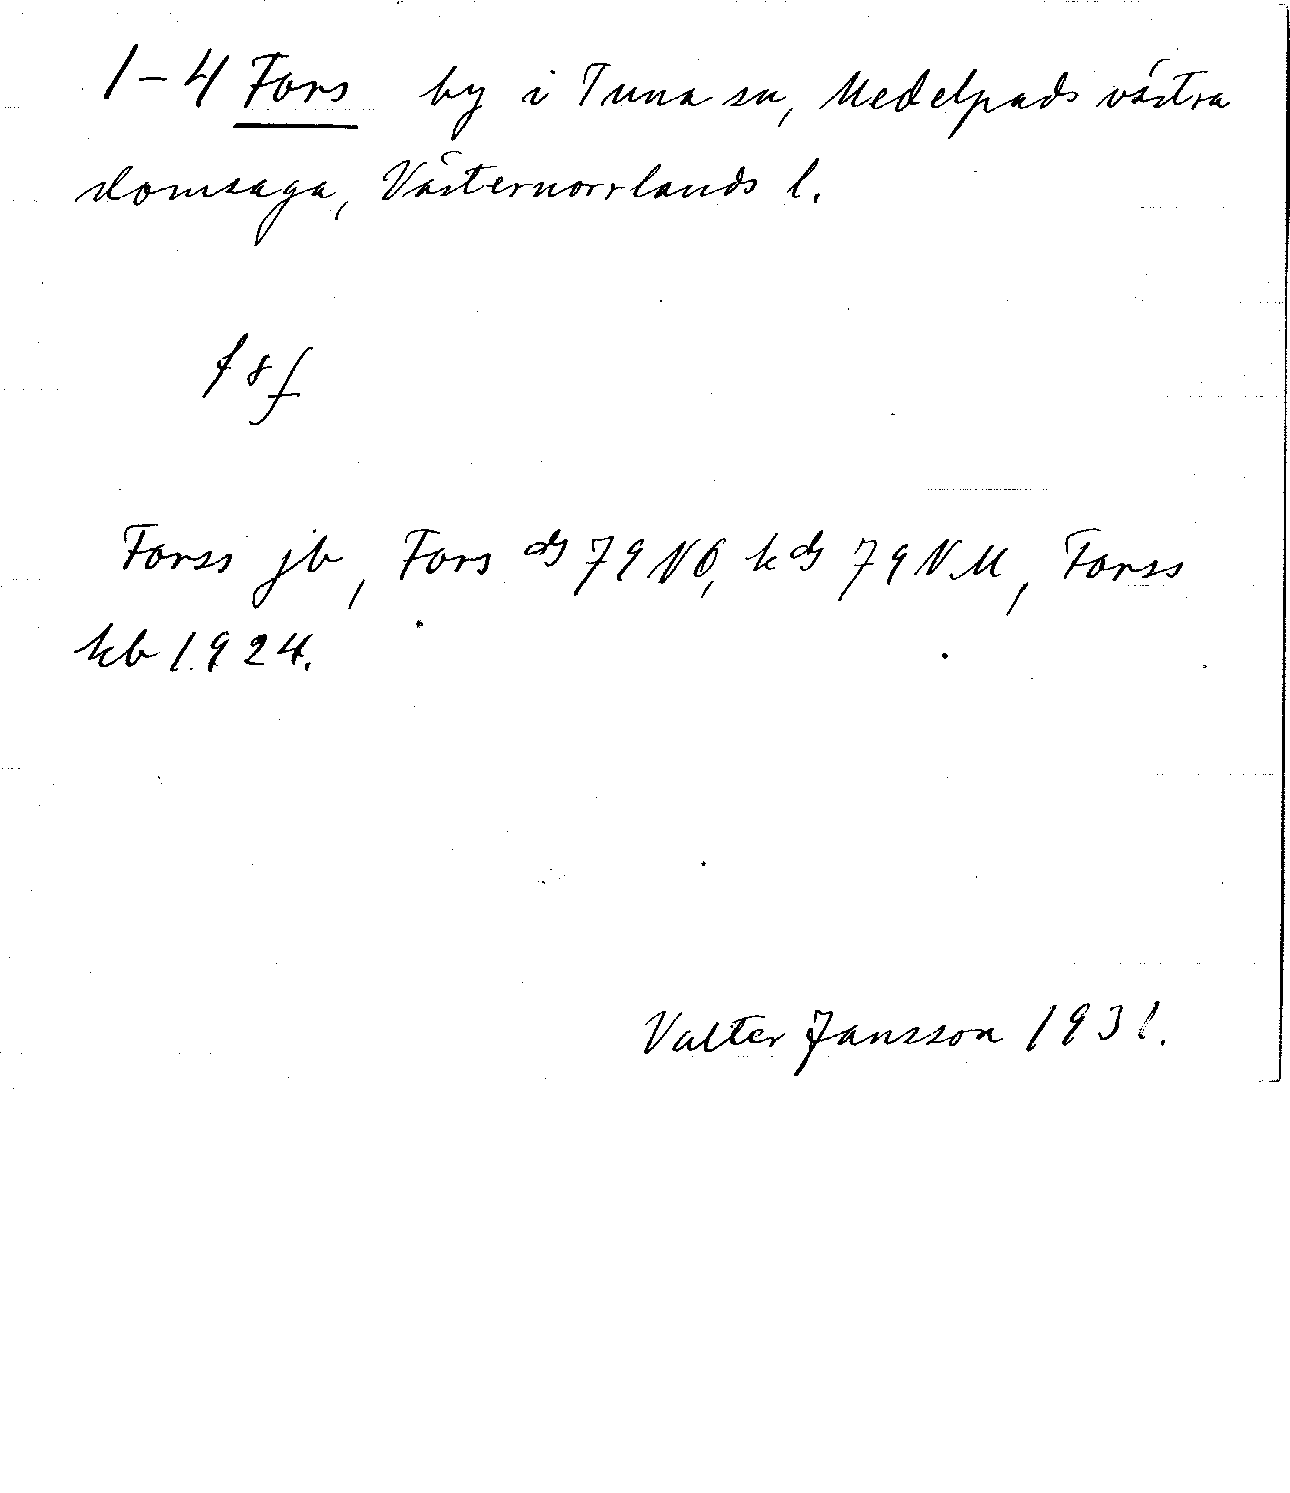 1-4 Fors by i Tuna sn, Medelpads västra
domsaga, Västernorrlands l.
Forss jb, Fors ds 79 NO, kds 79 NM, Forss
kb 1924.
Valter Jansson 1931.